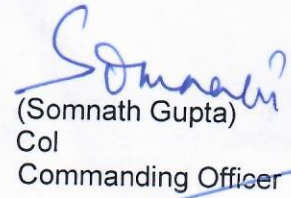 Somnath
(Somnath Gupta)
Col
Commanding Officer